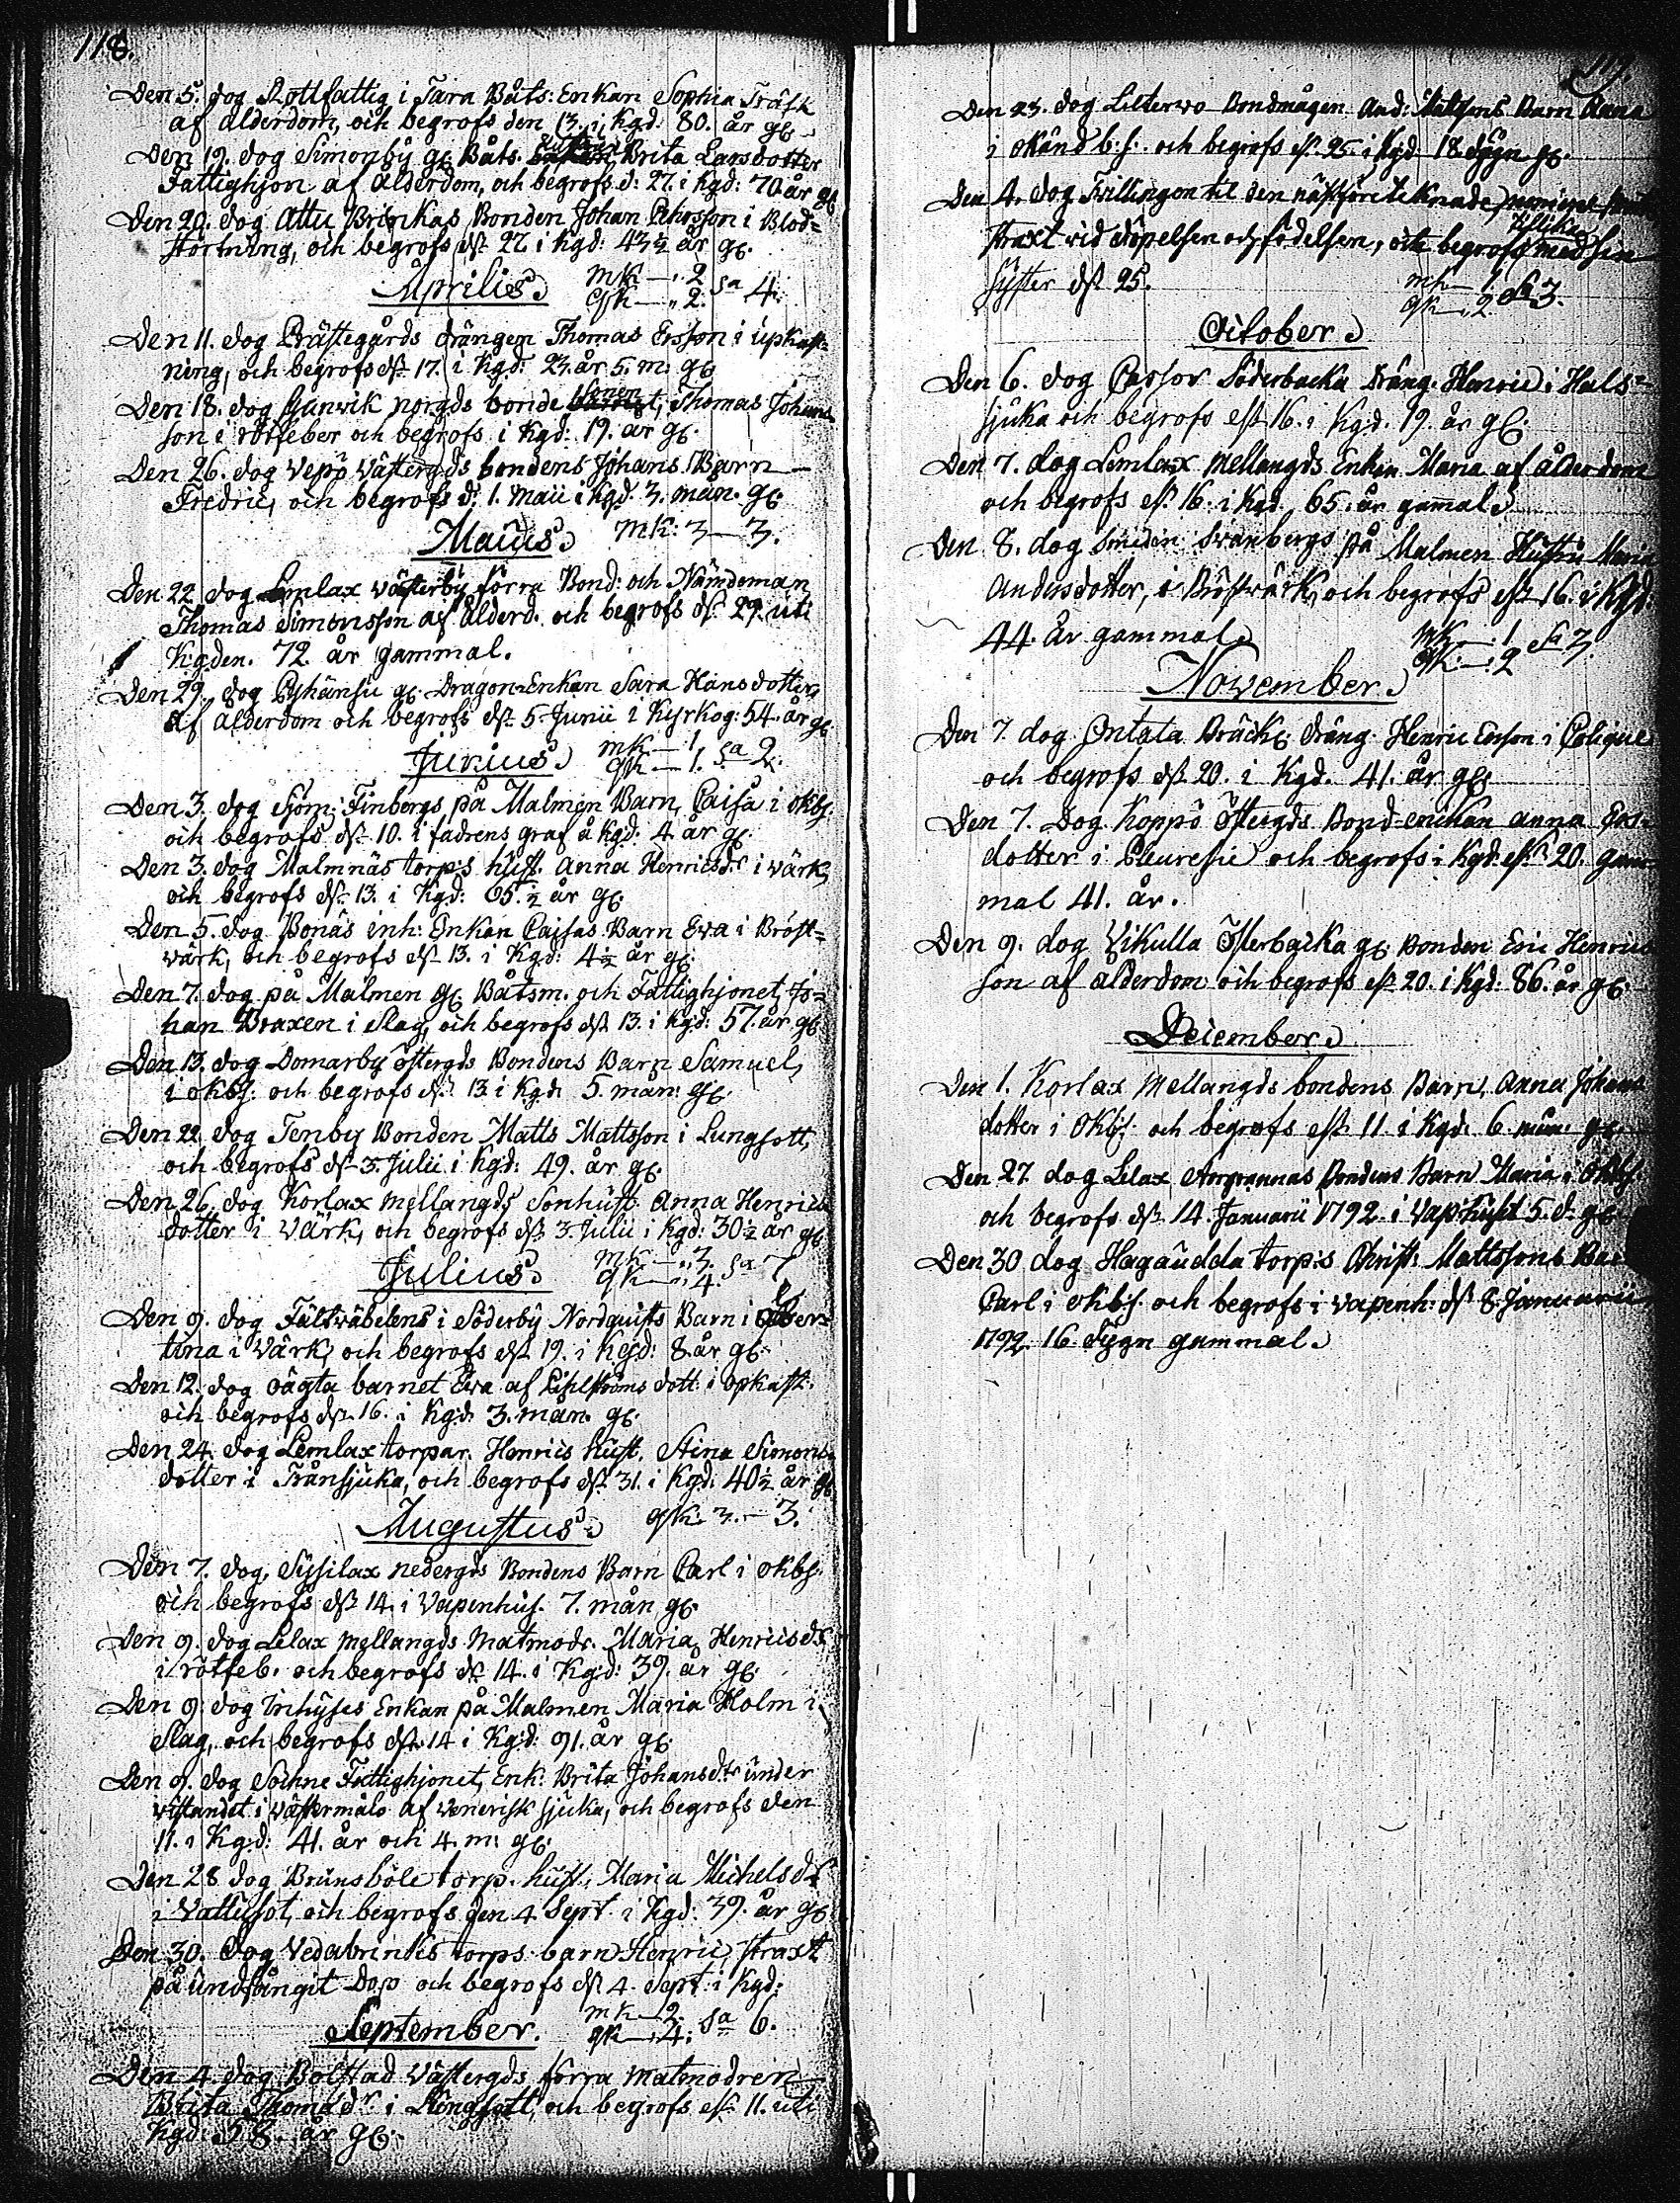 118.
Den 5. dog Rotfattig i Tara Båts: Enkan Sophia Träsk
af ålderdom, och begrofs den 13. i Kgd: 80. år gl.
Den 19. dog Simonby gl. Båts. Brita Larsdotter
Fattighjon af ålderdom, och begrofs d: 27. i Kgd: 70. år gl.
Den 20. dog Attu Brinkas Bonden Johan Pehrsson i Blod=
störtning, och begrofs dſ: 27. i Kgd: 43½ år gl.
Aprilis. mk — 2 qk — 2. Sa 4.
Den 11. dog Prästegårds drängen Thomas Ersson i upkast=
ning, och begrofs dſ: 17. i Kgd: 23. år 5. m: gl.
Den 18. dog norgds bonde sonen, Thomas Johans
son i rötfeber och begrofs i Kgd: 19. år gl.
Den 26. dog Vepö Västergds bondens Johans Barn
Fredric, och begrofs d: 1. Maii i Kgd. 3. mån. gl.
Maius. mk: 3 — 3.
Den 22 dog Lemlax Västerby förra Bond: och Nämdeman
Thomas Simonsson af ålderd. och begrofs dſ: 29. uti
Kgden. 72. år gammal.
Den 29. dog gl. Dragon-Enkan Sara Hansdotter
af ålderdom och begrofs dſ: 5. Junii i Kyrkog: 54. år gl.
Junius. mk — 1 qk — 1. Sa 2.
Den 3. dog Sjöm: Finbergs på Malmen Barn, Caisa i okbſ.
och begrofs dſ: 10. i fadrens graf å Kgd: 4. år gl.
Den 3. dog Malmnäs torp:s hust. Anna Henricsdr i värk,
och begrofs dſ: 13. i Kgd: 65½ år gl.
Den 5. dog Bonäs inh: Enkan Caisas Barn Eva i Bröst=
värk, och begrofs dſ: 13. i Kgd: 4½ år gl.
Den 7. dog på Malmen gl. Båtsm. och Fattighjonet, Jo=
han Braxen i Slag, och begrofs dſ: 13. i Kgd: 57. år gl.
Den 13. dog Domarby östergds Bondens Barn Samuel,
i okbſ. och begrofs dſ: 13 i Kgd: 5. mån: gl.
Den 22. dog Tenby Bonden Matts Mattsson i Lungsott,
och begrofs dſ: 3. Julii i Kgd: 49. år gl.
Den 26. dog Korlax mellangds Sonhust. Anna Henrics
dotter i Värk, och begrofs dſ: 3. Julii i Kgd: 30½ år gl.
Julius. mk — 3. qk — 4. Sa 7
Den 9. dog Fältväbelens i Söderby Nordquists Barn Alber=
tina i Värk, och begrofs dſ: 19. i Kgd: 8. år gl.
Den 12. dog oägta barnet Eva af dott: i opkast.
och begrofs dſ: 16. i Kgd: 3. mån. gl.
Den 24. dog Lemlax torpar. Henrics hust. Stina Simons
dotter i Trånsjuka, och begrofs dſ: 31. i Kgd: 40½ år gl.
Augustus. qk. 3. — 3.
Den 7. dog, Syssilax nedergds Bondens Barn Carl i okbſ.
och begrofs dſ: 14. i Vapenhus. 7. mån gl.
Den 9. dog Lelax mellangds Matmodr. Maria Henricsdr
i rötfeb. och begrofs dſ: 14. i Kgd: 39. år gl.
Den 9. dog Inhyses Enkan på Malmen Maria Holm i
Slag, och begrofs dſ: 14 i Kgd: 91. år gl.
Den 9. dog Sockne Fattighjonet, Enk: Brita Johansdr under
vistandet i Västermålo af Venerisk sjuka, och begrofs den
11. i Kgd: 41. år och 4. m: gl.
Den 28 dog Brunsböle torp. hust. Maria Michelsdr
i Vattusot, och begrofs den 4 Sept. i Kgd: 39. år gl.
Den 30. dog torps barn Henric, straxt
på undfångit Dop och begrofs dſ: 4. Sept. i Kgd:
September. mk — 2. qk — 4. Sa 6.
Den 4. dog, Bolstad Västergds förra matmodren
Brita Thomædr. i Lungsott, och begrofs dſ: 11. uti
Kgd: 58. år gl.
119.
Den 23. dog Lillervo Bondmågen And: Mattsons Barn Anna
i okänd b:s: och begrofs dſ: 25. i Kgd 18 dygn gl.
Den 4. dog Trillingen til den näst företecknade,
straxt vid döpelsen och födelsen, och begrofs med sin
syster dſ: 25. mk — 1. qk — 2. Sa 3.
October.
Den 6. dog Söderbacka Dräng. Henric i Hals=
sjuka och begrofs dſ: 16. i Kgd. 19. år gl.
Den 7. dog Lemlax Mellangds Enkan Maria af ålderdom
och begrofs dſ: 16. i Kgd. 65. år gammal.
Den 8. dog smeden Svanbergs på Malmen Hustru Maria
Andersdotter, i Bröstvärk, och begrofs dſ: 16. i Kgd:
44. år gammal. mk — 1. qk — 2 Sa 3.
November.
Den 7. dog Ontala Bräckg dräng Henric Ersson i Colique
och begrofs dſ: 20. i Kgd. 41. år gl.
Den 7. Dog Koppö Östergds Bond-enckan Anna
dotter i Pleuresie och begrofs i Kgd. dſ: 20. gam=
mal 41. år.
Den 9. dog Vikulla Österbacka gl. Bonden Eric Henrics
son af ålderdom och begrofs dſ: 20. i Kgd: 86. år gl.
December.
Den 1. Korlax Mellangds bondens Barn, Anna Johans
dotter i Okbſ. och begrofs dſ: 11. i Kgd. 6. mån. gl.
Den 27 dog Lelax Bondens Barn Maria i Okbſ.
och begrofs dſ: 14. Januarii 1792. i Vap:huset 5. d. gl.
Den 30 dog Hagaudda torp:s Christ: Mattssons
Carl i okbſ. och begrofs i vapenh. dſ: 8. Januarii
1792. 16. dygn gammal.